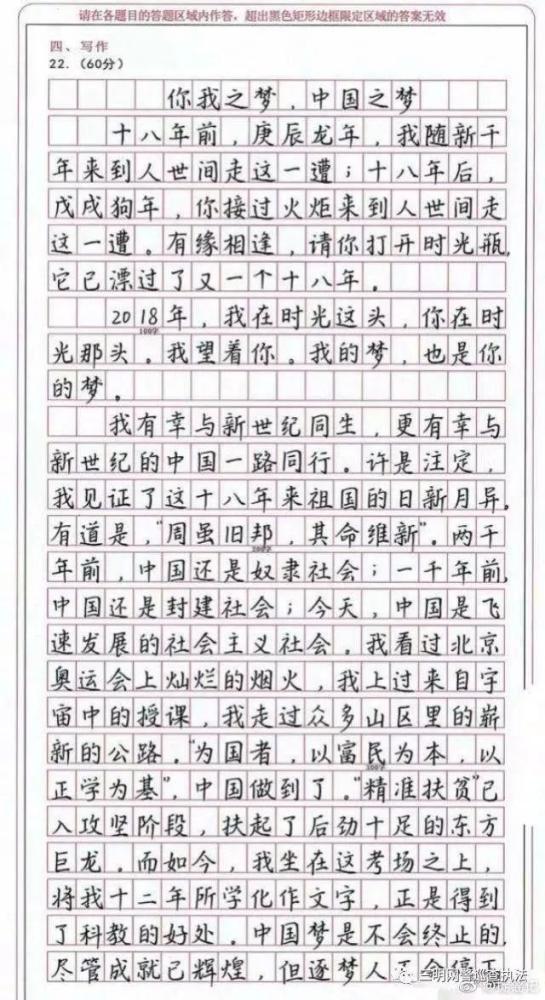 请在各题目的答题区域内作答，超出黑色矩形边框限定区域的答案无效
四、写作
22.（60分）
你我之梦，中国之梦
十八年前，庚辰龙年，我随新千
年来到人世间走这一遭；十八年后，
戊戌狗年，你接过火炬来到人世间走
这一遭。有缘相逢，请你打开时光瓶，
它已漂过了又一个十八年。
2018年，我在时光这头，你在时
100字
光那头。我望着你。我的梦，也是你
的梦。
我有幸与新世纪同生，更有幸与
新世纪的中国一路同行。许是注定，
我见证了这十八年来祖国的日新月异。
有道是，“周虽旧邦，其命维新”。两千
200字
年前，中国还是奴隶社会；一千年前，
中国还是封建社会；今天，中国是飞
速发展的社会主义社会。我看过北京
奥运会上灿烂的烟火，我上过来自宇
宙中的授课，我走过众多山区里的崭
新的公路。“为国者，以富民为本，以
300字
正学为基”，中国做到了。“精准扶贫”已
入攻坚阶段，扶起了后劲十足的东方
巨龙。而如今，我坐在这考场之上，
将我十二年所学化作文字，正是得到
了科教的好处。中国梦是不会终止的，
尽管成就已辉煌，但逐梦人
三明网警巡查执法